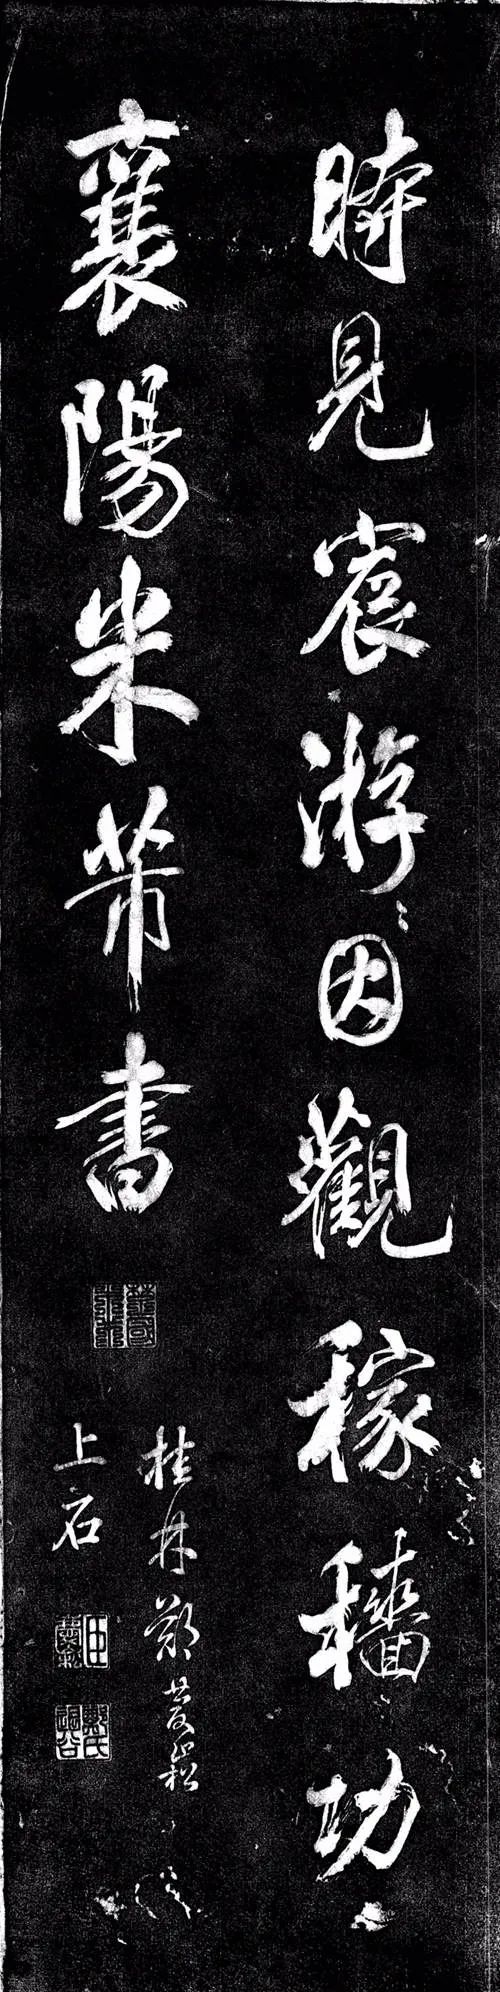 時見宸游因觀稼穡功
襄陽米芾書
桂林鄭
上石